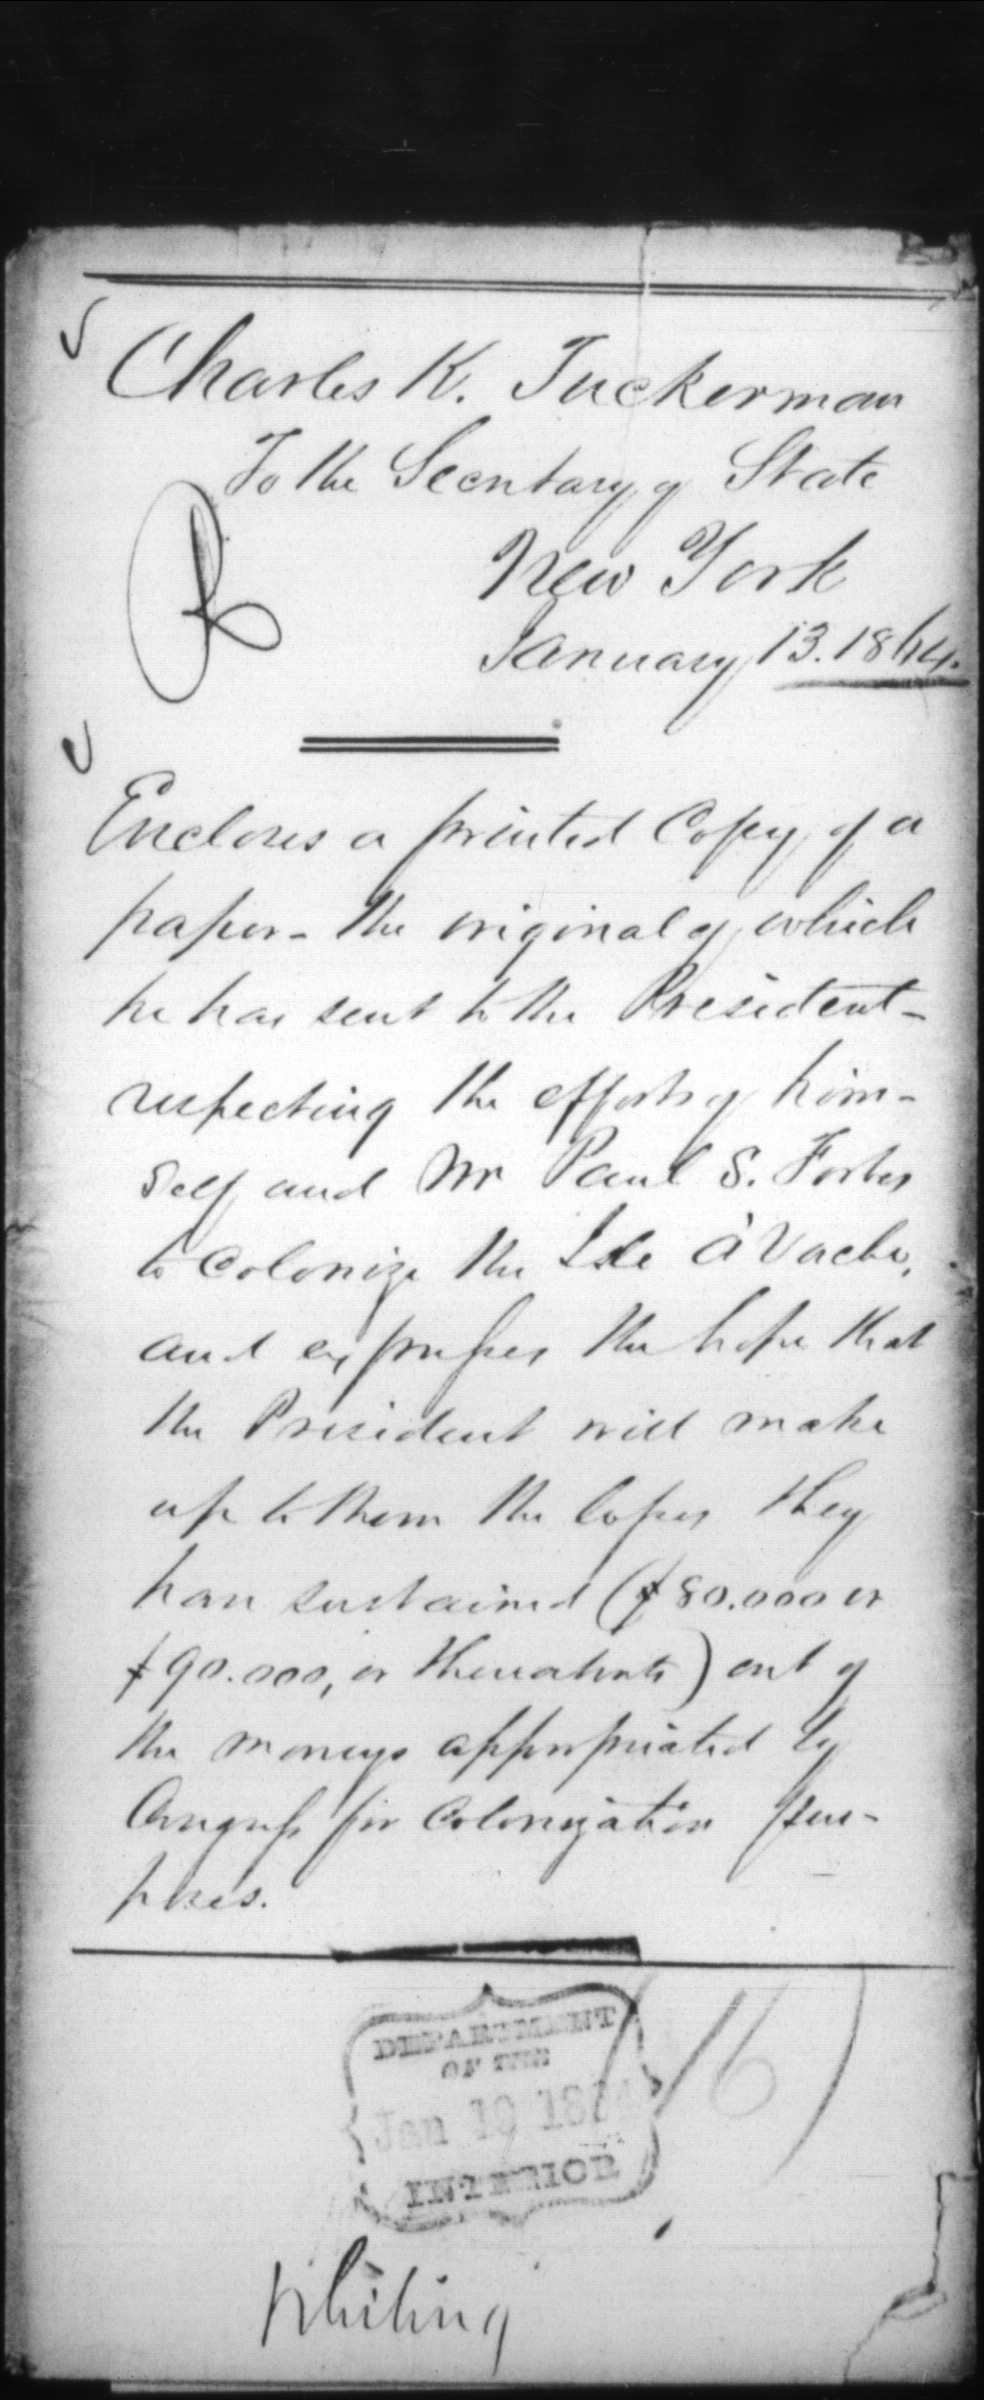 Charles K. Tuckerman
To the Secretary of State
New York
January 13. 1864.
R
Encloses a printed Copy of a
paper - the original of which
he has sent to the President -
respecting the efforts of him-
self and Mr Paul S. Forbes
to Colonize the Isle A'Vache,
and expresses the hope that
the President will make
up to them the losses they
have sustained ($80.000 or
$90.000, or thereabouts) out of
the moneys appropriated by
Congress for Colonization pur-
poses.
DEPARTMENT
OF THE
Jan 19 1864
INTERIOR
16)
Whiting